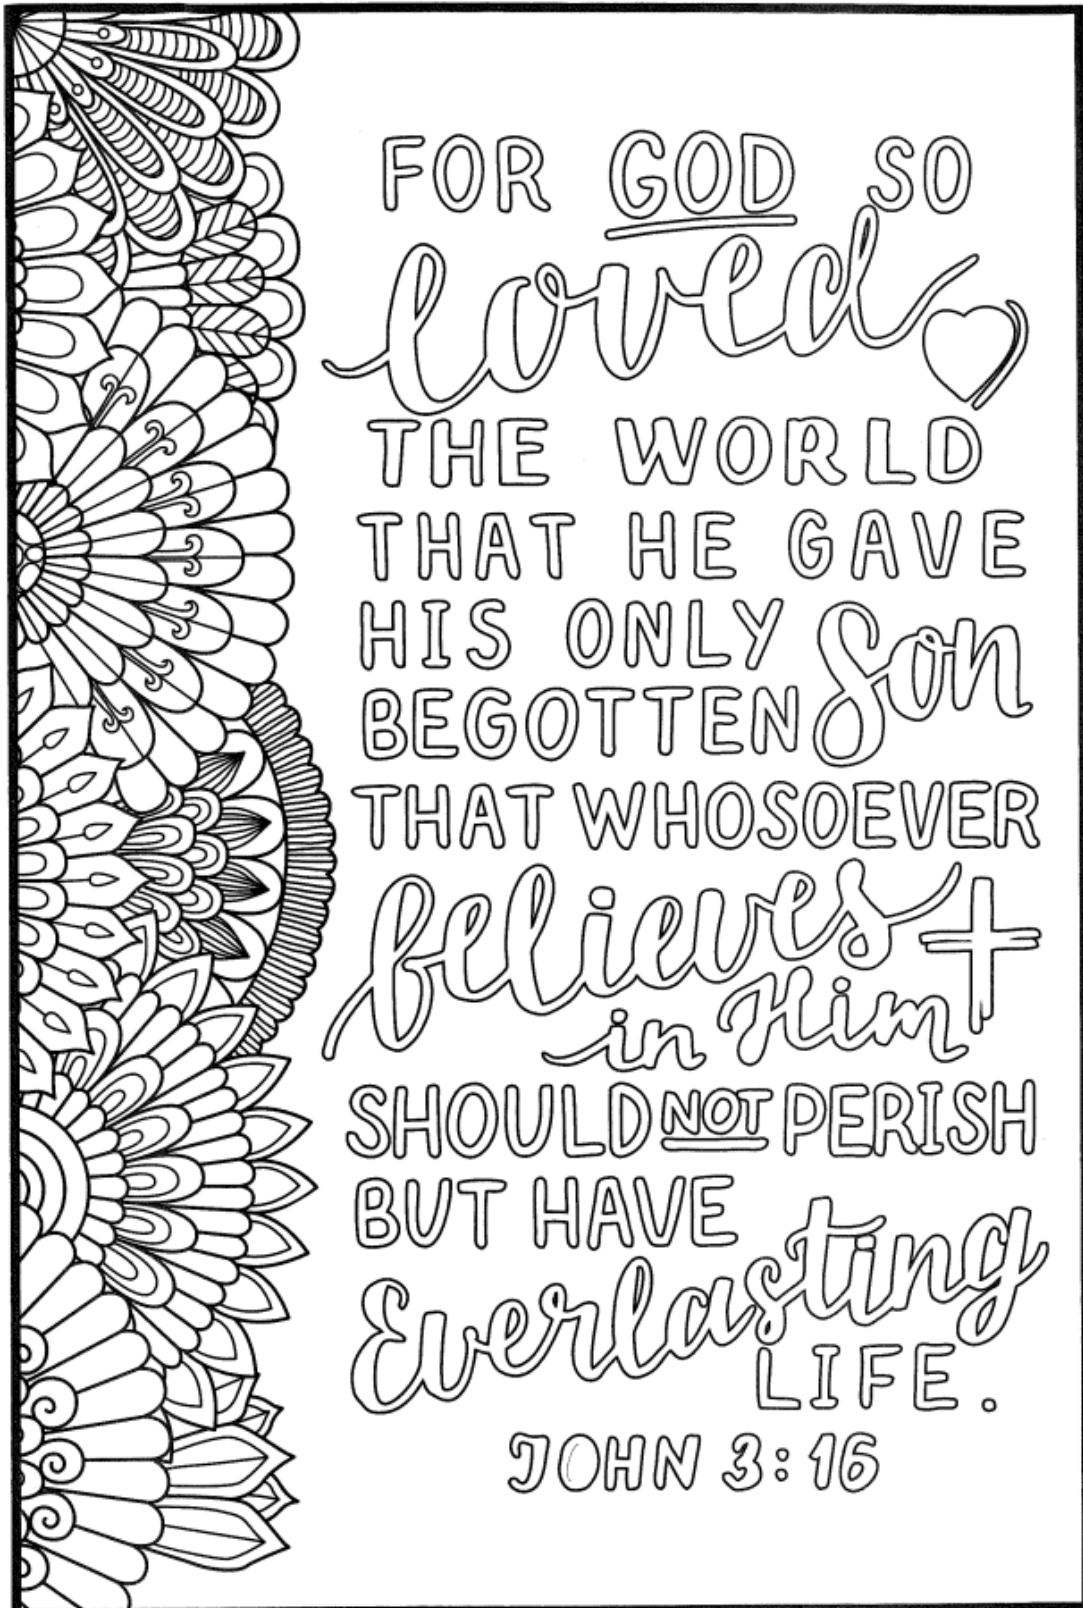 FOR GOD SO
loved
THE WORLD
THAT HE GAVE
HIS ONLY
BEGOTTEN Son
THAT WHOSOEVER
believes
in Him
SHOULD NOT PERISH
BUT HAVE
Everlasting
LIFE.
JOHN 3:16